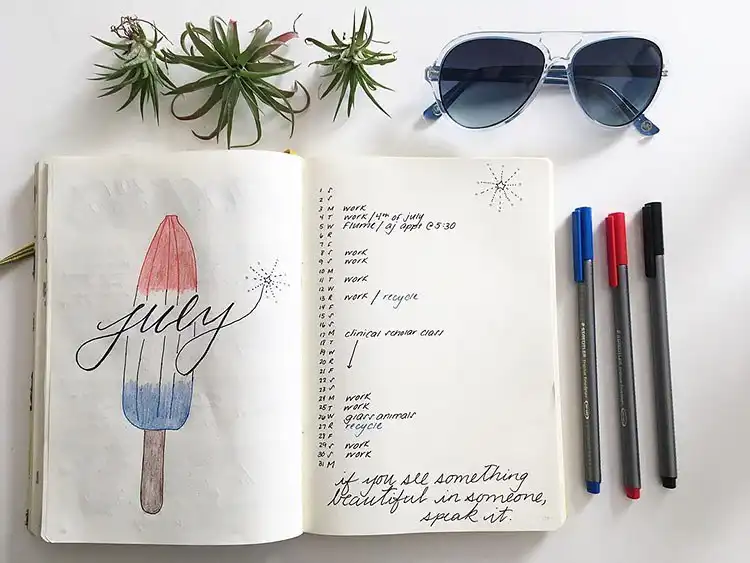 july
1 S
2 S
3 M work
4 T work / 4th of july
5 W Flume / aj apple @ 5:30
6 R
7 F
8 S work
9 S work
10 M
11 T work
12 W
13 R work / recycle
14 F
15 S
16 S
17 M clinical scholar class
18 T
19 W
20 R
21 F
22 S
23 S
24 M work
25 T work
26 W glass animals
27 R recycle
28 F
29 S work
30 S work
31 M
if you see something
beautiful in someone,
speak it.
STAEDTLER
STAEDTLER